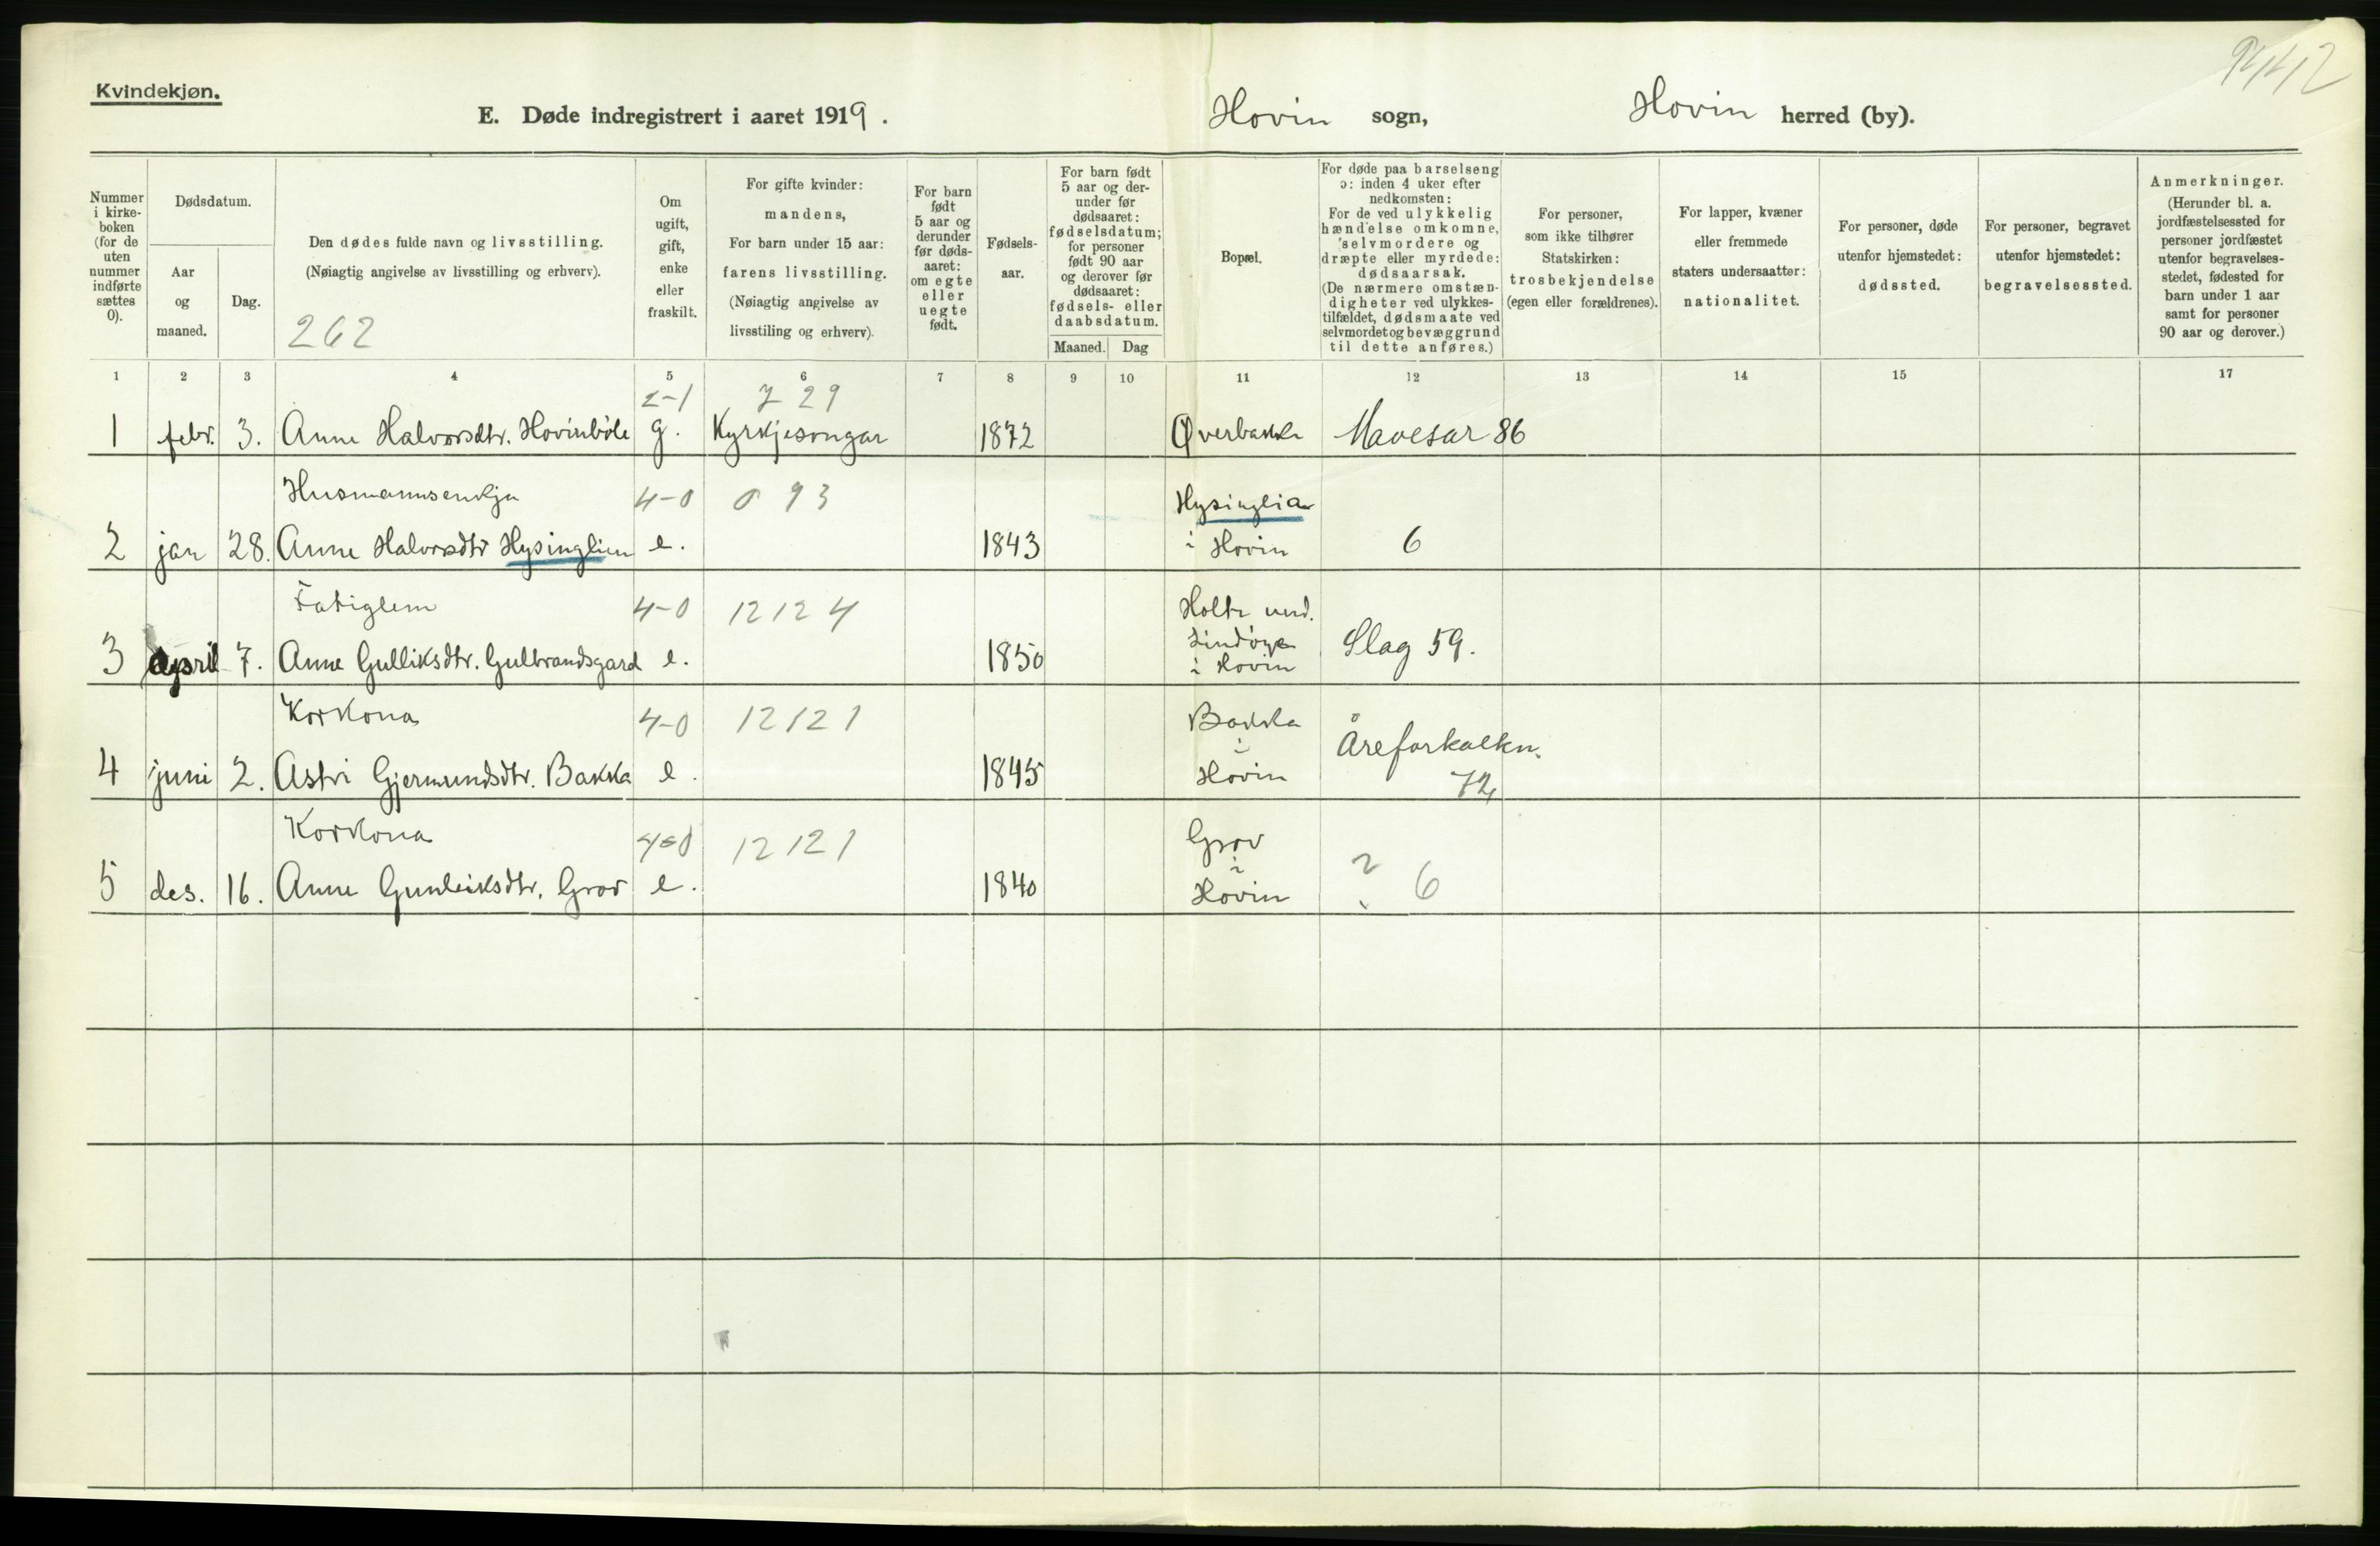 9442
Kvindekjøn.
E. Døde indregistrert i aaret 1919. Hovin sogn, Hovin herred (by).
Nummer i kirke-boken (for de uten nummer indførte sættes 0).
Dødsdatum.
Aar og maaned.
Dag.
Den dødes fulde navn og livsstilling.
(Nøiagtig angivelse av livsstilling og erhverv).
262
Om ugift, gift, enke eller fraskilt.
For gifte kvinder:
mandens,
For barn under 15 aar:
farens livsstilling.
(Nøiagtig angivelse av
livsstiling og erhverv).
For barn født 5 aar og derunder før døds-aaret: om egte eller uegte født.
Fødsels-aar.
For barn født 5 aar og der-under før dødsaaret: fødselsdatum; for personer født 90 aar og derover før dødsaaret: fødsels- eller daabsdatum.
Maaned. Dag
Bopæl.
For døde paa barselseng ɔ: inden 4 uker efter nedkomsten: For de ved ulykkelig hændelse omkomne, selvmordere og dræpte eller myrdede: dødsaarsak. (De nærmere omstæn-digheter ved ulykkes-tilfældet, dødsmaate ved selvmordet og bevæggrund til dette anføres.)
For personer, som ikke tilhører Statskirken: trosbekjendelse (egen eller forældrenes).
For lapper, kvæner eller fremmede staters undersaatter: nationalitet.
For personer, døde utenfor hjemstedet: dødssted.
For personer, begravet utenfor hjemstedet: begravelsessted.
Anmerkninger. (Herunder bl. a. jordfæstelsessted for personer jordfæstet utenfor begravelses-stedet, fødested for barn under 1 aar samt for personer 90 aar og derover.)
1 2 3 4 5 6 7 8 9 10 11 12 13 14 15 17
2-1 7 29
1 febr. 3. Anne Halvorsdtr. Hovinbøle g. Kyrkjesongar 1872 Øverbakke Mavesar 86
Husmannsenkja 4-0 0 93 Hysinglia
2 jan 28. Anne Halvorsdtr Hysinglien e. 1843 i Hovin 6
Fatiglem 4-0 12 12 4 Holte und.
Lindøya
3 april 7. Anne Gulliksdtr. Gulbrandsgard e. 1850 i Hovin Slag 59.
Korkona 4-0 12 12 1 Bakka
i
4 juni 2. Astri Gjermundsdtr. Bakka e. 1845 Hovin Åreforkalkn. 72
Korkona 4-0 12 12 1 Grov
i
5 des. 16. Anne Gunleiksdtr. Grov e. 1840 Hovin ? 6